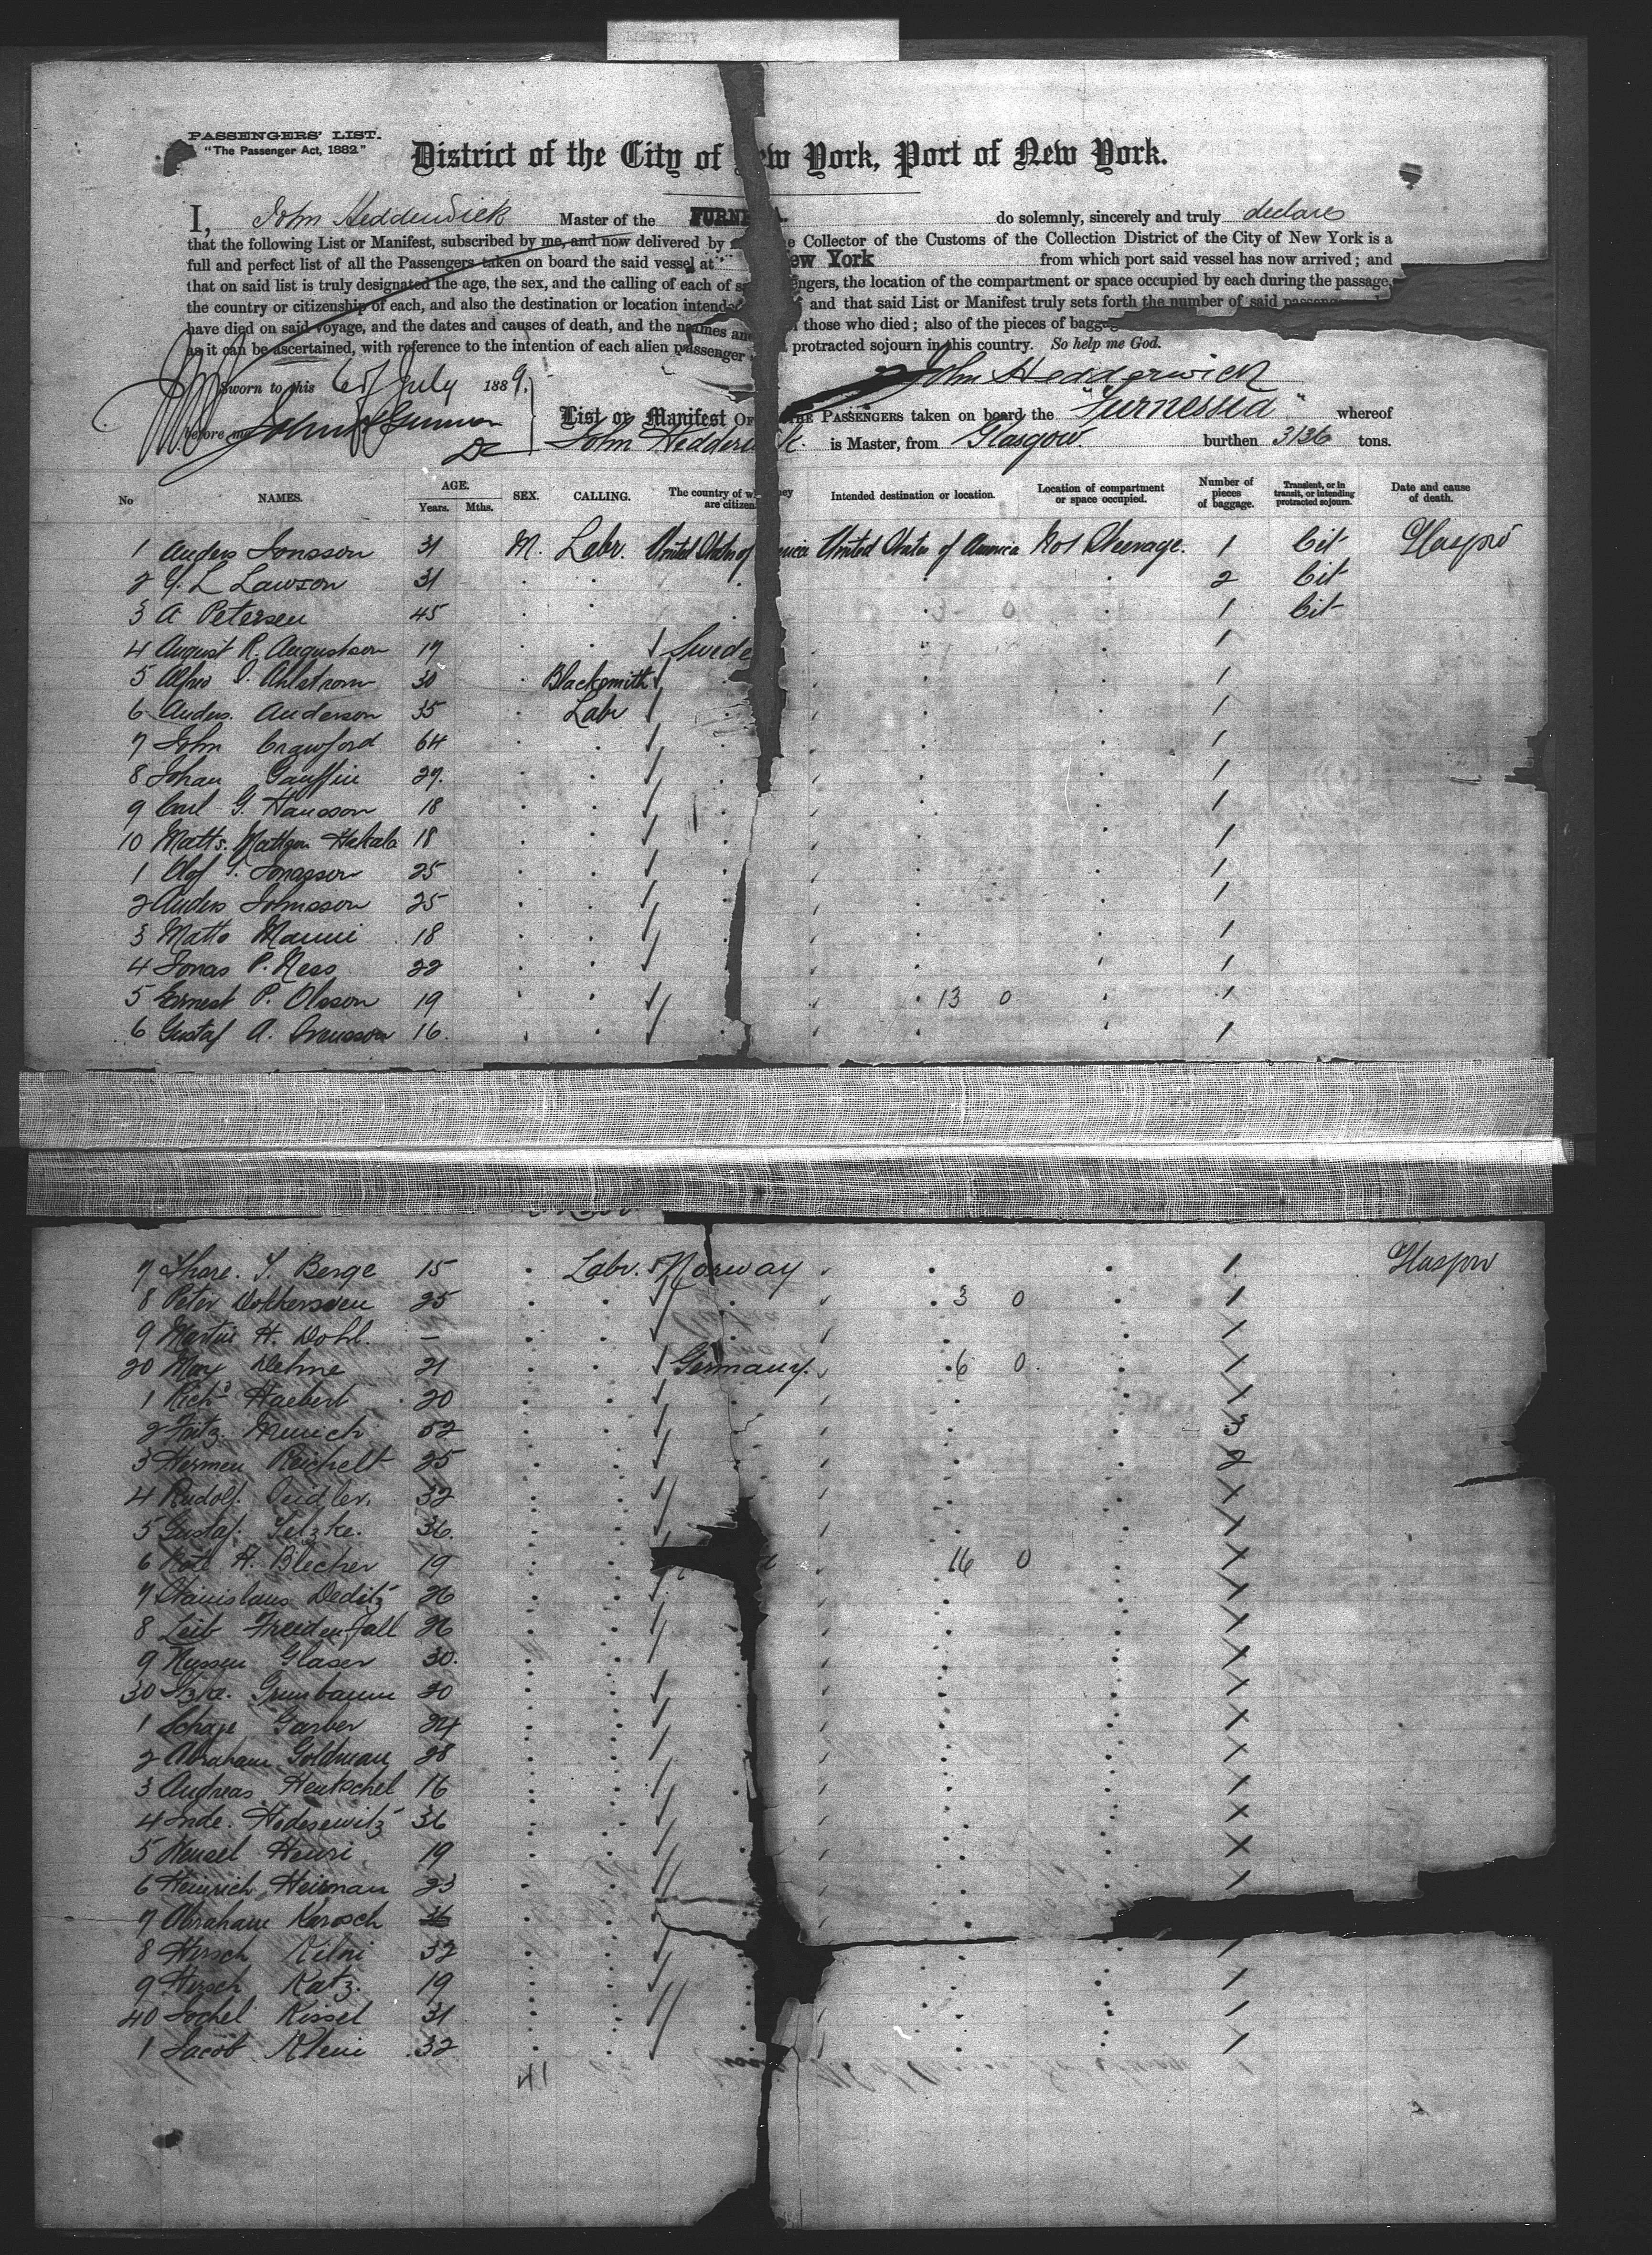 PASSENGERS' LIST.
"The Passenger Act, 1882"
District of the City of New York, Port of New York.
I, John Hedderwick Master of the FURNE A. do solemnly, sincerely and truly declares
that the following List or Manifest, subscribed by me, and now delivered by e Collector of the Customs of the Collection District of the City of New York is a
full and perfect list of all the Passengers taken on board the said vessel at ew York from which port said vessel has now arrived; and
that on said list is truly designated the age, the sex, and the calling of each of s engers, the location of the compartment or space occupied by each during the passage,
the country or citizenship of each, and also the destination or location intende and that said List or Manifest truly sets forth the number of said passenge
have died on said voyage, and the dates and causes of death, and the names an those who died; also of the pieces of baggag
as it can be ascertained, with reference to the intention of each alien passenger protracted sojourn in this country. So help me God.
Sworn to this 6 of July 1889. John Hedderwick
before me List or Manifest OF THE PASSENGERS taken on board the "Furnessia" whereof
John Hedderwick is Master, from Glasgow. burthen 3136 tons.
No NAMES. AGE. Years. Mths. SEX. CALLING. The country of w ney are citizen Intended destination or location. Location of compartment or space occupied. Number of pieces of baggage. Transient, or in transit, or intending protracted sojourn. Date and cause of death.
1 Anders Jonsson 31 M. Labr. United States of merica United States of America No 1 Steerage. 1 Cit Glasgow
2 G. L Lawson 31 2 Cit
3 A Petersen 45 3 0 1 Cit
4 August R. Augustson 19 Swede 1
5 Alfred I. Ahlstrom 30 Blacksmith 1
6 Anders. Anderson 35 Labr 1
7 John Crawford 64 1
8 Johan Gauffin 27. 1
9 Carl G. Hansson 18 1
10 Matts. Mattson Hakala 18 1
1 Olof T. Jonasson 25 1
2 Anders Johnsson 25 1
3 Matts Manni 18 1
4 Jonas P. Ness 22 1
5 Ernest P. Olsson 19 13 0 1
6 Gustaf A. Svensson 16. 1
7 Thore. T. Berge 15 Labr. Norway 1 Glasgow
8 Peter 25 3 0 1
9 Martin H. Dohl. - 1
20 Max Dehne 21 Germany. 6 0. 1
1 Richd Haebert 20 1
2 Fritz. Munich 52 3
3 Hermen Reichelt 25 2
4 Rudolf. Seidler. 32 1
5 Gustaf. Tetzke. 36. 1
6 H. Blecher 19 16 0 1
7 Stanislaus Deditz 26 1
8 Leib Freidenfall 26 1
9 Nussen Glaser 30. 1
30 Grunbaum 20 1
1 Schaje Garber 24 1
2 Abraham Goldman 28 1
3 Andreas Hentschel 16 1
4 Inde. Hodesewitz 36 1
5 Wensel Henri 19 1
6 Heinrich Heisman 23 1
7 Abraham Karosch
8 Hirsch Kilni 32 1
9 Hirsch Katz. 19 1
40 Sochel Kissel 31 1
1 Jacob Klein 32 1
41